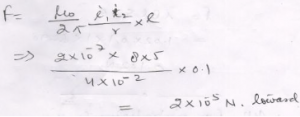 F = μ₀/2π i₁i₂/r × l
⇒ 2×10⁻⁷ × 8×5 / 4×10⁻² × 0.1
= 2×10⁻⁵ N. toward